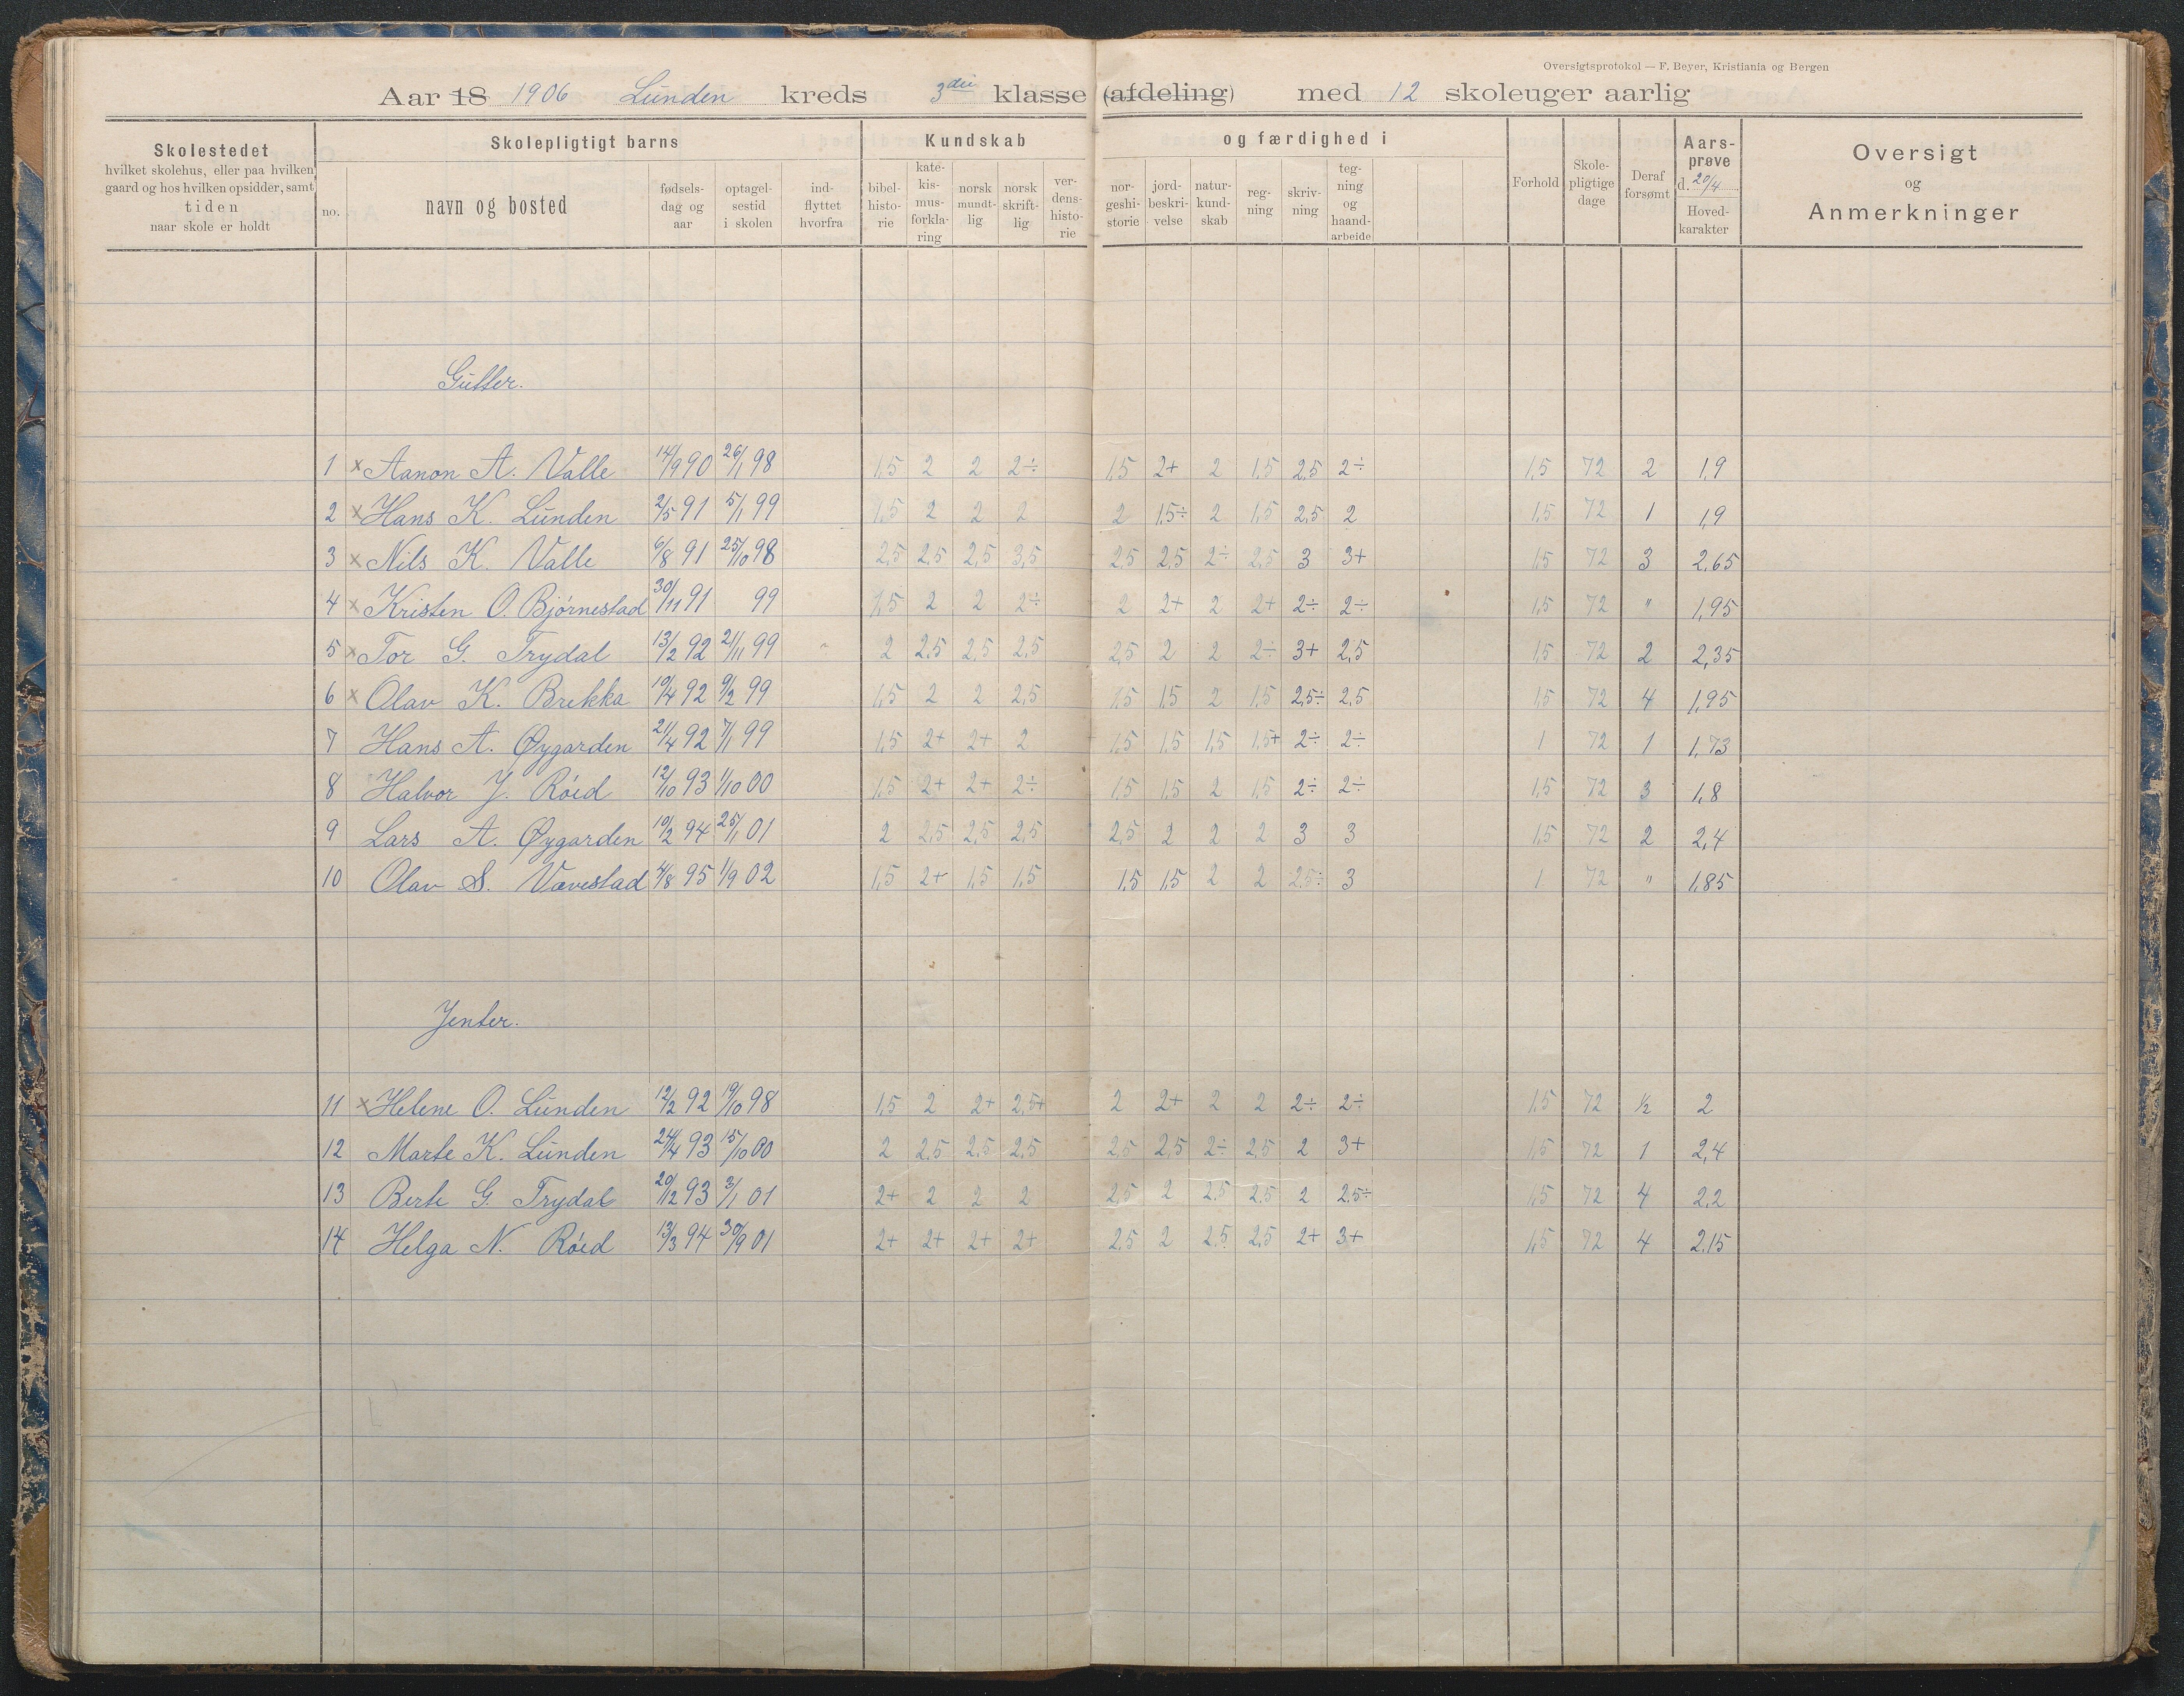 Oversigtsprotokol — F. Beyer, Kristiania og Bergen
Aar 18 1906 Lunden kreds 3die klasse (afdeling) med 12 skoleuger aarlig
Skolestedet
hvilket skolehus, eller paa hvilken
gaard og hos hvilken opsidder, samt
tiden
naar skole er holdt
Skolepligtigt barns
no.
navn og bosted
fødsels-
dag og
aar
optagel-
sestid
i skolen
ind-
flyttet
hvorfra
Kundskab
bibel-
histo-
rie
kate-
kis-
mus-
forkla-
ring
norsk
mundt-
lig
norsk
skrift-
lig
ver-
dens-
histo-
rie
og færdighed i
nor-
geshi-
storie
jord-
beskri-
velse
natur-
kund-
skab
reg-
ning
skriv-
ning
teg-
ning
og
haand-
arbeide
Forhold
Skole-
pligtige
dage
Deraf
forsømt
Aars-
prøve
d. 20/4
Hoved-
karakter
Oversigt
og
Anmerkninger
Gutter.
1 x Aanon A. Valle 14/9 90 26/1 98 1,5 2 2 2÷ 1,5 2+ 2 1,5 2,5 2÷ 1,5 72 2 1,9
2 x Hans K. Lunden 2/5 91 5/1 99 1,5 2 2 2 2 1,5÷ 2 1,5 2,5 2 1,5 72 1 1,9
3 x Nils K. Valle 6/8 91 25/10 98 2,5 2,5 2,5 3,5 2,5 2,5 2÷ 2,5 3 3+ 1,5 72 3 2,65
4 x Kristen O. Bjørnestad 30/11 91 99 1,5 2 2 2÷ 2 2+ 2 2+ 2÷ 2÷ 1,5 72 " 1,95
5 x Tor G. Trydal 13/2 92 21/11 99 2 2,5 2,5 2,5 2,5 2 2 2÷ 3+ 2,5 1,5 72 2 2,35
6 x Olav K. Brekka 10/4 92 9/2 99 1,5 2 2 2,5 1,5 1,5 2 1,5 2,5÷ 2,5 1,5 72 4 1,95
7 Hans A. Øygarden 21/4 92 7/1 99 1,5 2+ 2+ 2 1,5 1,5 1,5 1,5+ 2÷ 2÷ 1 72 1 1,73
8 Halvor J. Røid 12/10 93 1/10 00 1,5 2+ 2+ 2÷ 1,5 1,5 2 1,5 2÷ 2÷ 1,5 72 3 1,8
9 Lars A. Øygarden 10/2 94 25/1 01 2 2,5 2,5 2,5 2,5 2 2 2 3 3 1,5 72 2 2,4
10 Olav S. Vævestad 4/8 95 1/9 02 1,5 2+ 1,5 1,5 1,5 1,5 2 2 2,5÷ 3 1 72 " 1,85
Jenter.
11 x Helene O. Lunden 12/2 92 19/10 98 1,5 2 2+ 2,5+ 2 2+ 2 2 2÷ 2÷ 1,5 72 ½ 2
12 Marte K. Lunden 24/4 93 15/10 00 2 2,5 2,5 2,5 2,5 2,5 2÷ 2,5 2 3+ 1,5 72 1 2,4
13 Berte G. Trydal 20/12 93 3/1 01 2+ 2 2 2 2,5 2 2,5 2,5 2 2,5÷ 1,5 72 4 2,2
14 Helga N. Røid 13/3 94 30/9 01 2+ 2+ 2+ 2+ 2,5 2 2,5 2,5 2+ 3+ 1,5 72 4 2,15